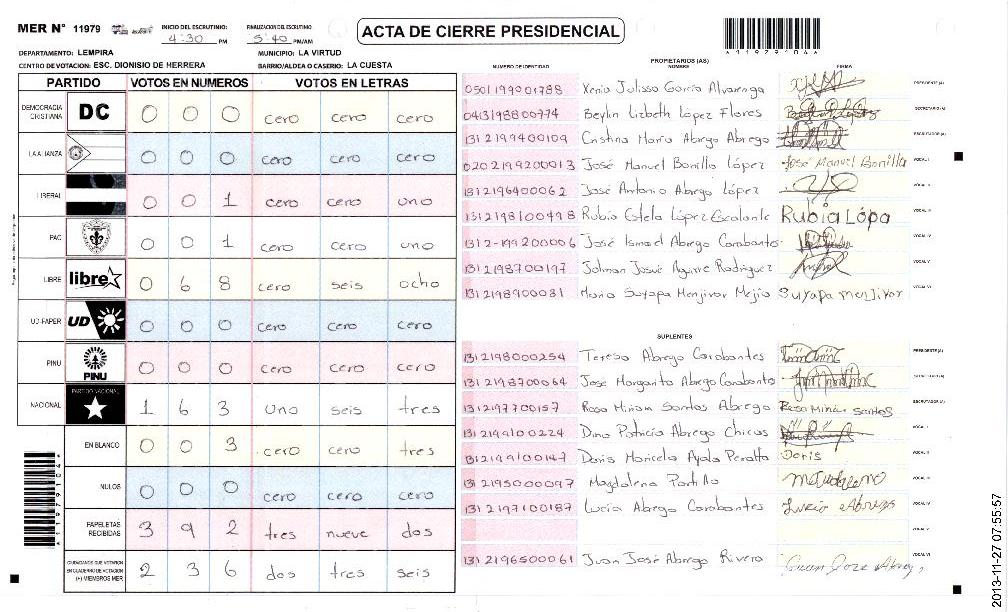 MER N° 11979
INICIO DEL ESCRUTINIO
4:30 PM
FINALIZACION DEL ESCRUTINIO
5:40 PM/AM
ACTA DE CIERRE PRESIDENCIAL
DEPARTAMENTO: LEMPIRA
MUNICIPIO: LA VIRTUD
CENTRO DE VOTACION: ESC. DIONISIO DE HERRERA
BARRIO/ALDEA O CASERIO: LA CUESTA
PARTIDO VOTOS EN NUMEROS VOTOS EN LETRAS
DEMOCRACIA CRISTIANA DC 0 0 0 cero cero cero
LA ALIANZA 0 0 0 cero cero cero
LIBERAL 0 0 1 cero cero uno
PAC 0 0 1 cero cero uno
LIBRE libre 0 6 8 cero seis ocho
UD-FAPER UD 0 0 0 cero cero cero
PINU PINU 0 0 0 cero cero cero
NACIONAL PARTIDO NACIONAL 1 6 3 uno seis tres
EN BLANCO 0 0 3 cero cero tres
NULOS 0 0 0 cero cero cero
PAPELETAS RECIBIDAS 3 9 2 tres nueve dos
CIUDADANOS QUE VOTARON EN CUADERNO DE VOTACION (+) MIEMBROS MER 2 3 6 dos tres seis
PROPIETARIOS (AS)
NUMERO DE IDENTIDAD NOMBRE FIRMA
0501199001788 Xenia Julissa García Alvarenga PRESIDENTE (A)
0413198800774 Beylin Lizbeth López Flores SECRETARIO (A)
1312199400109 Cristina María Abrego Abrego ESCRUTADOR (A)
0202199200013 José Manuel Bonilla López José Manuel Bonilla VOCAL I
1312196400062 José Antonio Abrego López VOCAL II
1312198100498 Rubia Estela López Escalante Rubia Lópa VOCAL III
1312-199200006 José Ismael Abrego Carabantes VOCAL IV
1312198700197 Jolman Josué Aguirre Rodriguez VOCAL V
1312198900031 Maria Suyapa Menjivar Mejía Suyapa menjivar VOCAL VI
SUPLENTES
1312198000254 Teresa Abrego Carabantes PRESIDENTE (A)
1312198700064 José Margarito Abrego Carabante SECRETARIO (A)
1312197700157 Rosa Miriam Santos Abrego Rosa Minan santos ESCRUTADOR (A)
1312199100224 Dina Patricia Abrego Chicas VOCAL I
1312199100147 Doris Maricela Ayala Peralta Doris VOCAL II
1312195000097 Magdalena Portillo VOCAL III
1312197100187 Lucia Abrego Carabantes Lucia Abrego VOCAL IV
VOCAL V
1312196500061 Juan José Abrego Rivera Juan Jose Abrego VOCAL VI
A11979104A
2013-11-27 07:55:57